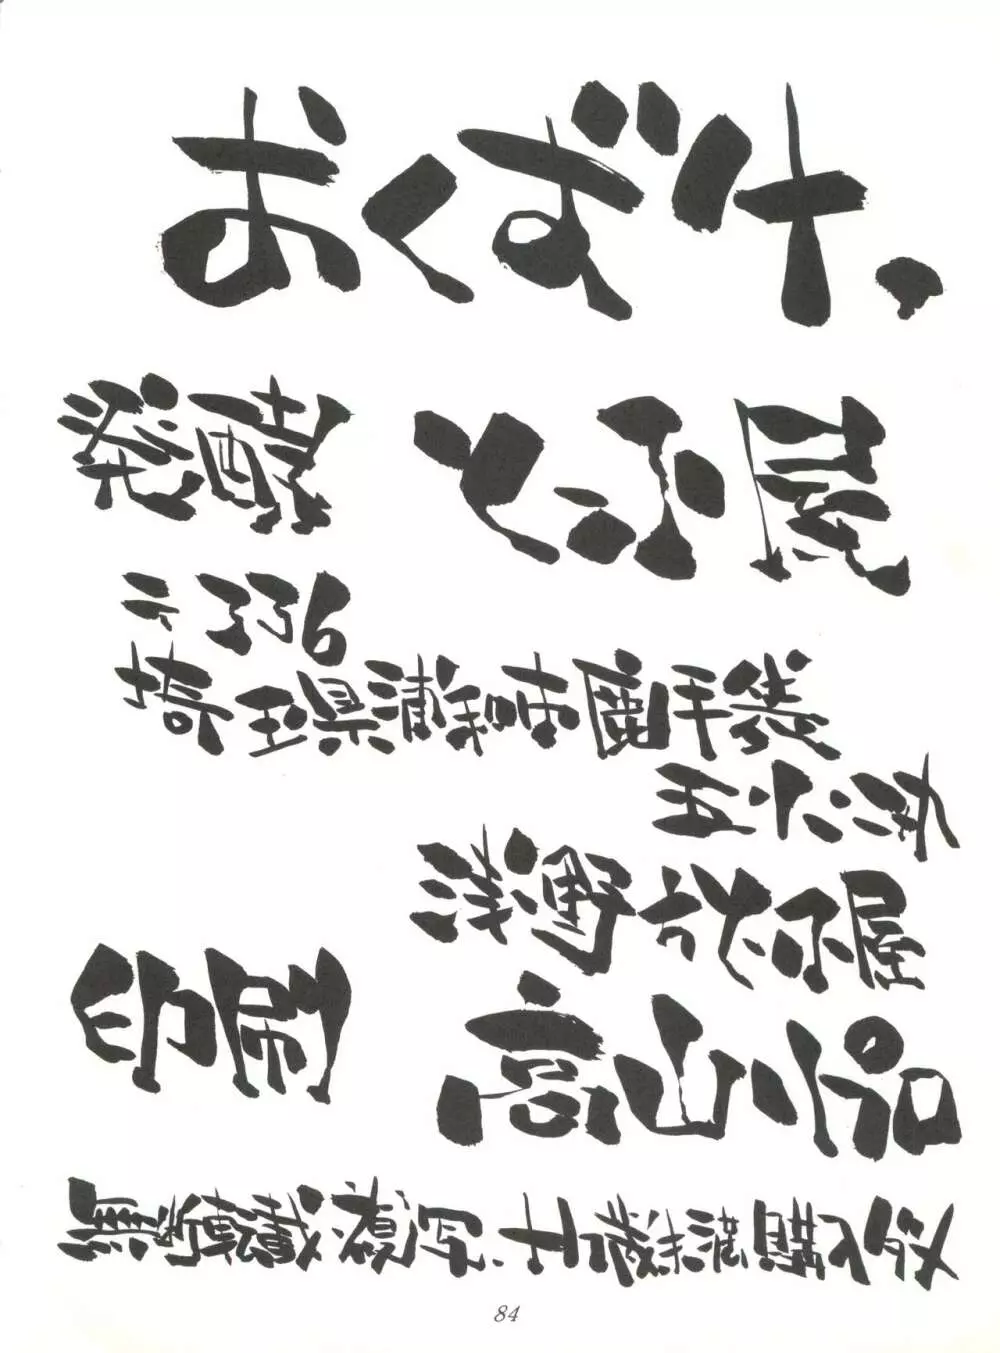 おくず汁、
発酵 とふ屋
〒336
埼玉県浦和市鹿手袋
五ノ十二ノ
浅野方 とふ屋
印刷 高山プロ
無断転載、複写、十八歳未満購入
84